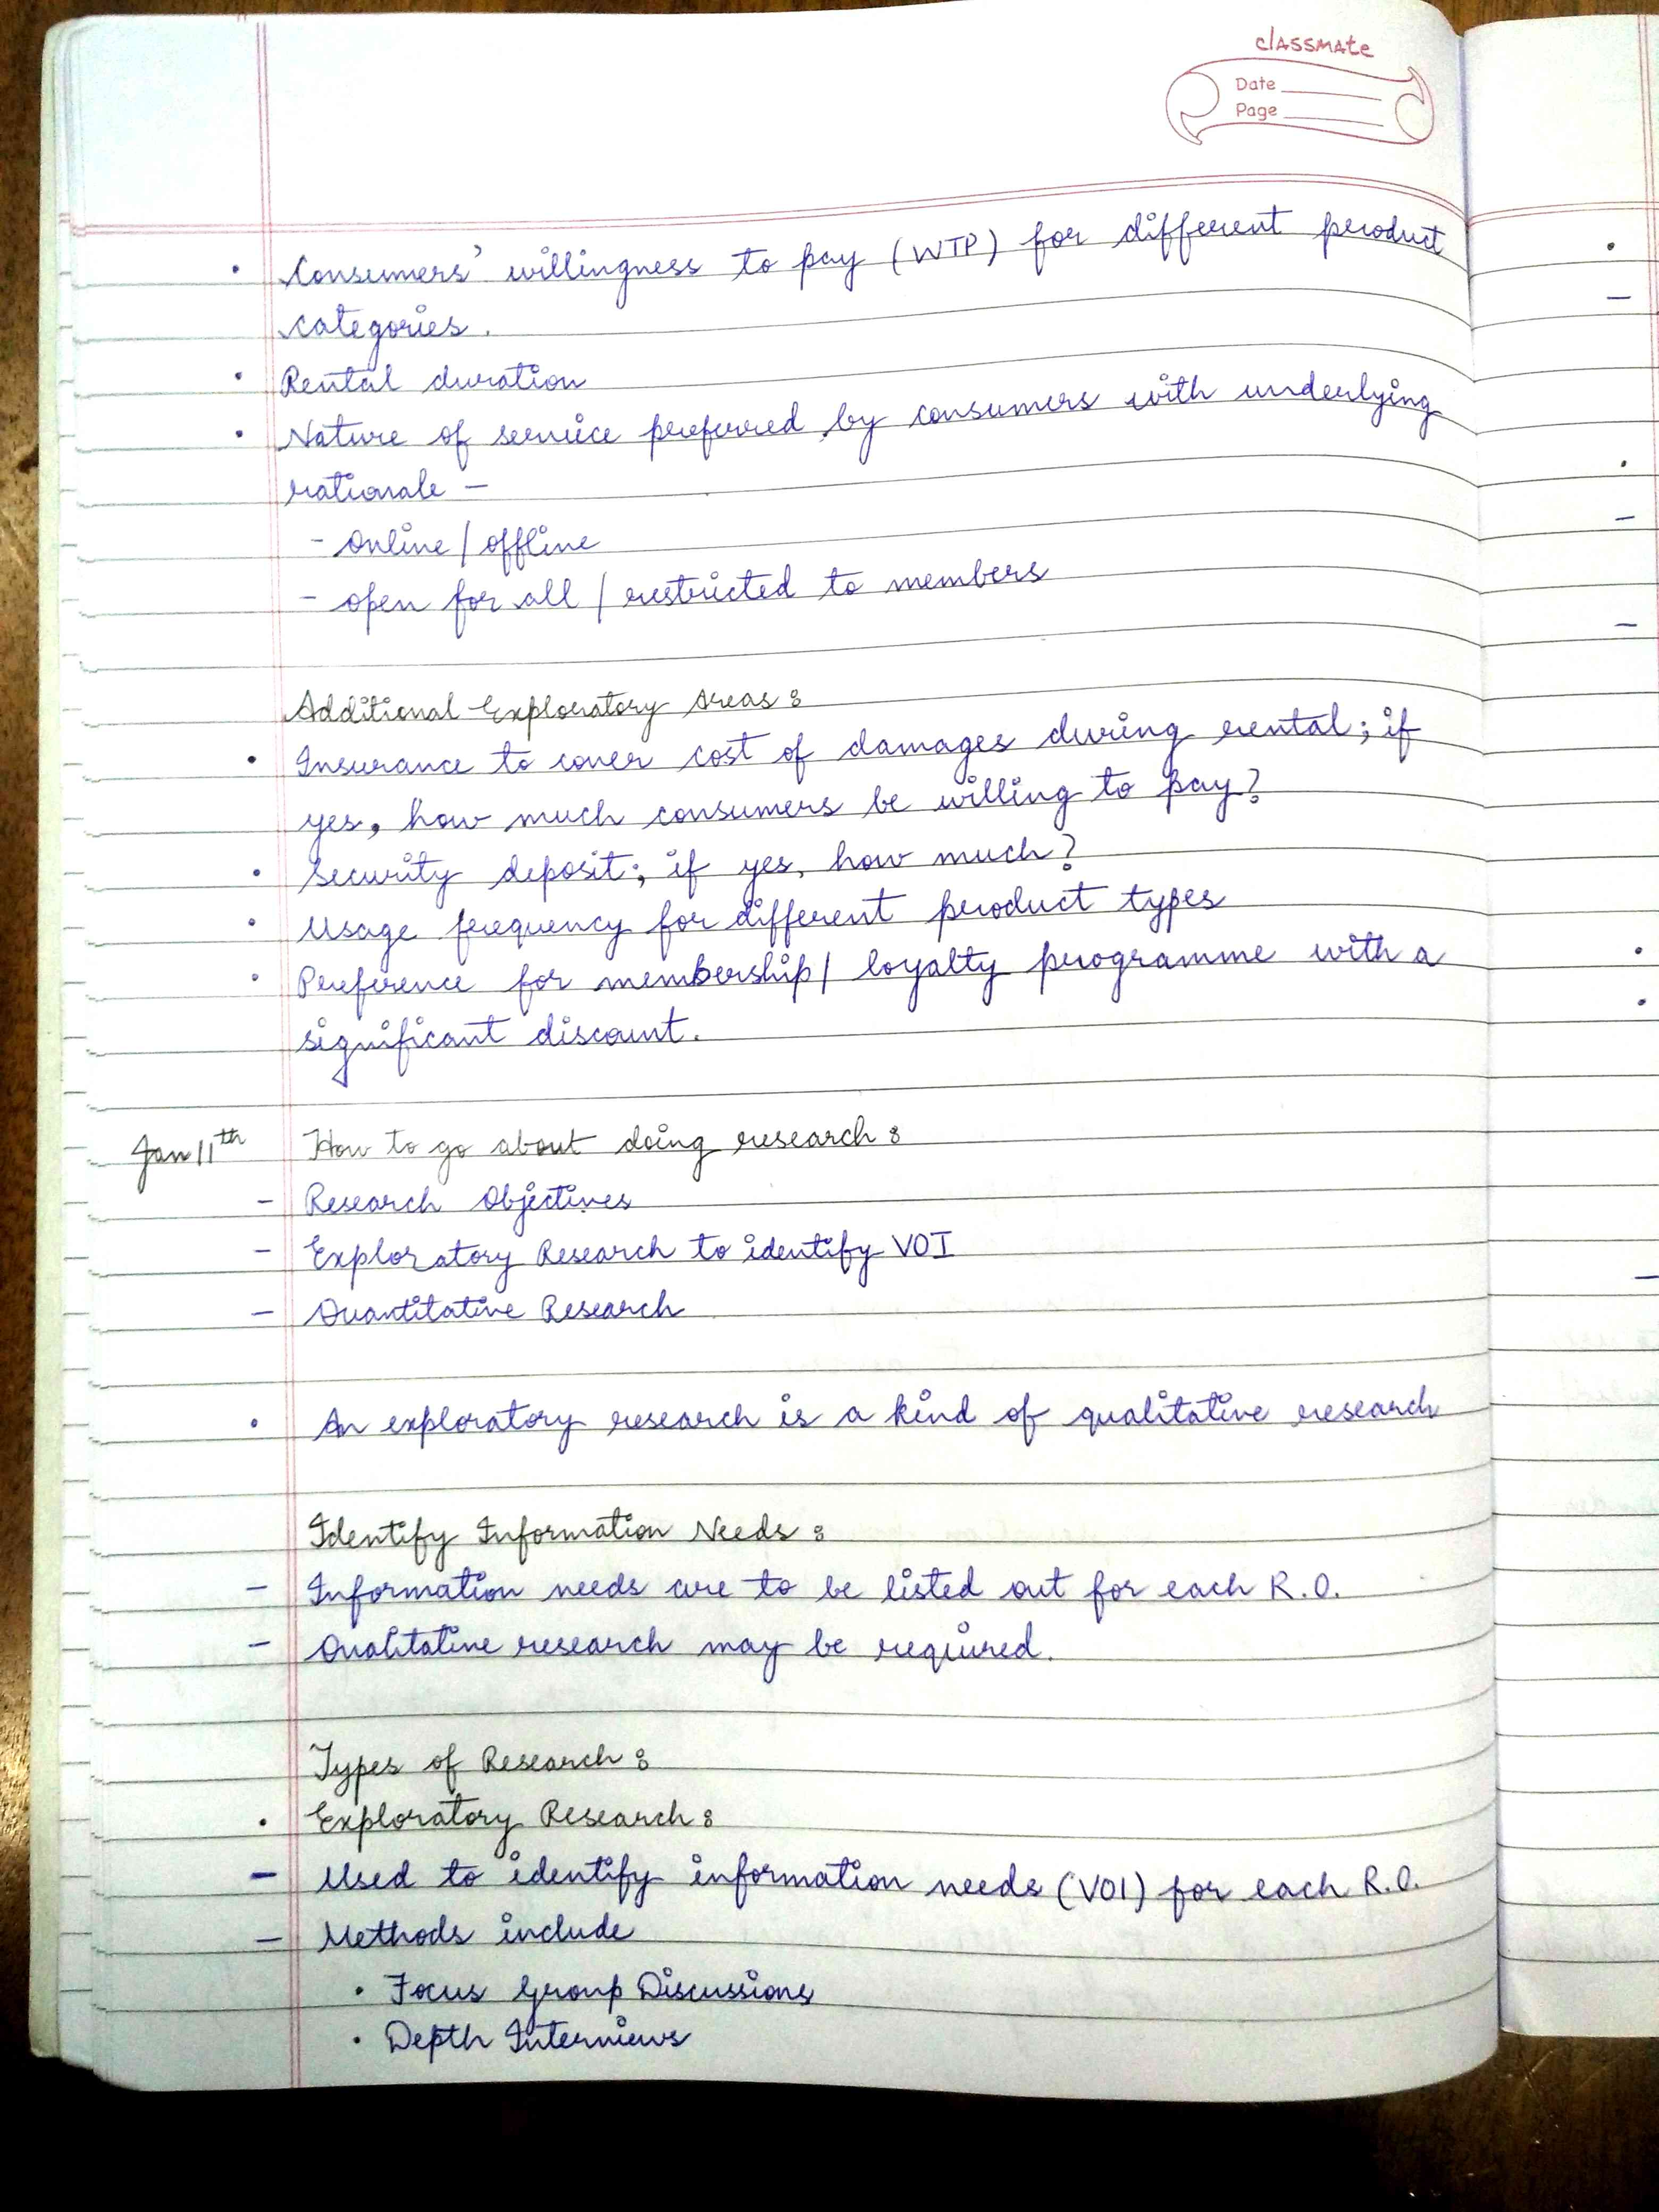 classmate
Date
Page
• Consumers' willingness to pay (WTP) for different product
categories.
• Rental duration
• Nature of service preferred by consumers with underlying
rationale –
- online / offline
- open for all / restricted to members
Additional Exploratory Areas :
• Insurance to cover cost of damages during rental; if
yes, how much consumers be willing to pay?
• Security deposit; if yes, how much?
• Usage frequency for different product types
• Preference for membership / loyalty programme with a
significant discount.
Jan 11th How to go about doing research :
– Research Objectives
– Exploratory Research to identify VOI
– Quantitative Research
• An exploratory research is a kind of qualitative research
Identify Information Needs :
– Information needs are to be listed out for each R.O.
– Qualitative research may be required.
Types of Research :
• Exploratory Research :
– Used to identify information needs (VOI) for each R.O.
– Methods include
• Focus Group Discussions
• Depth Interviews